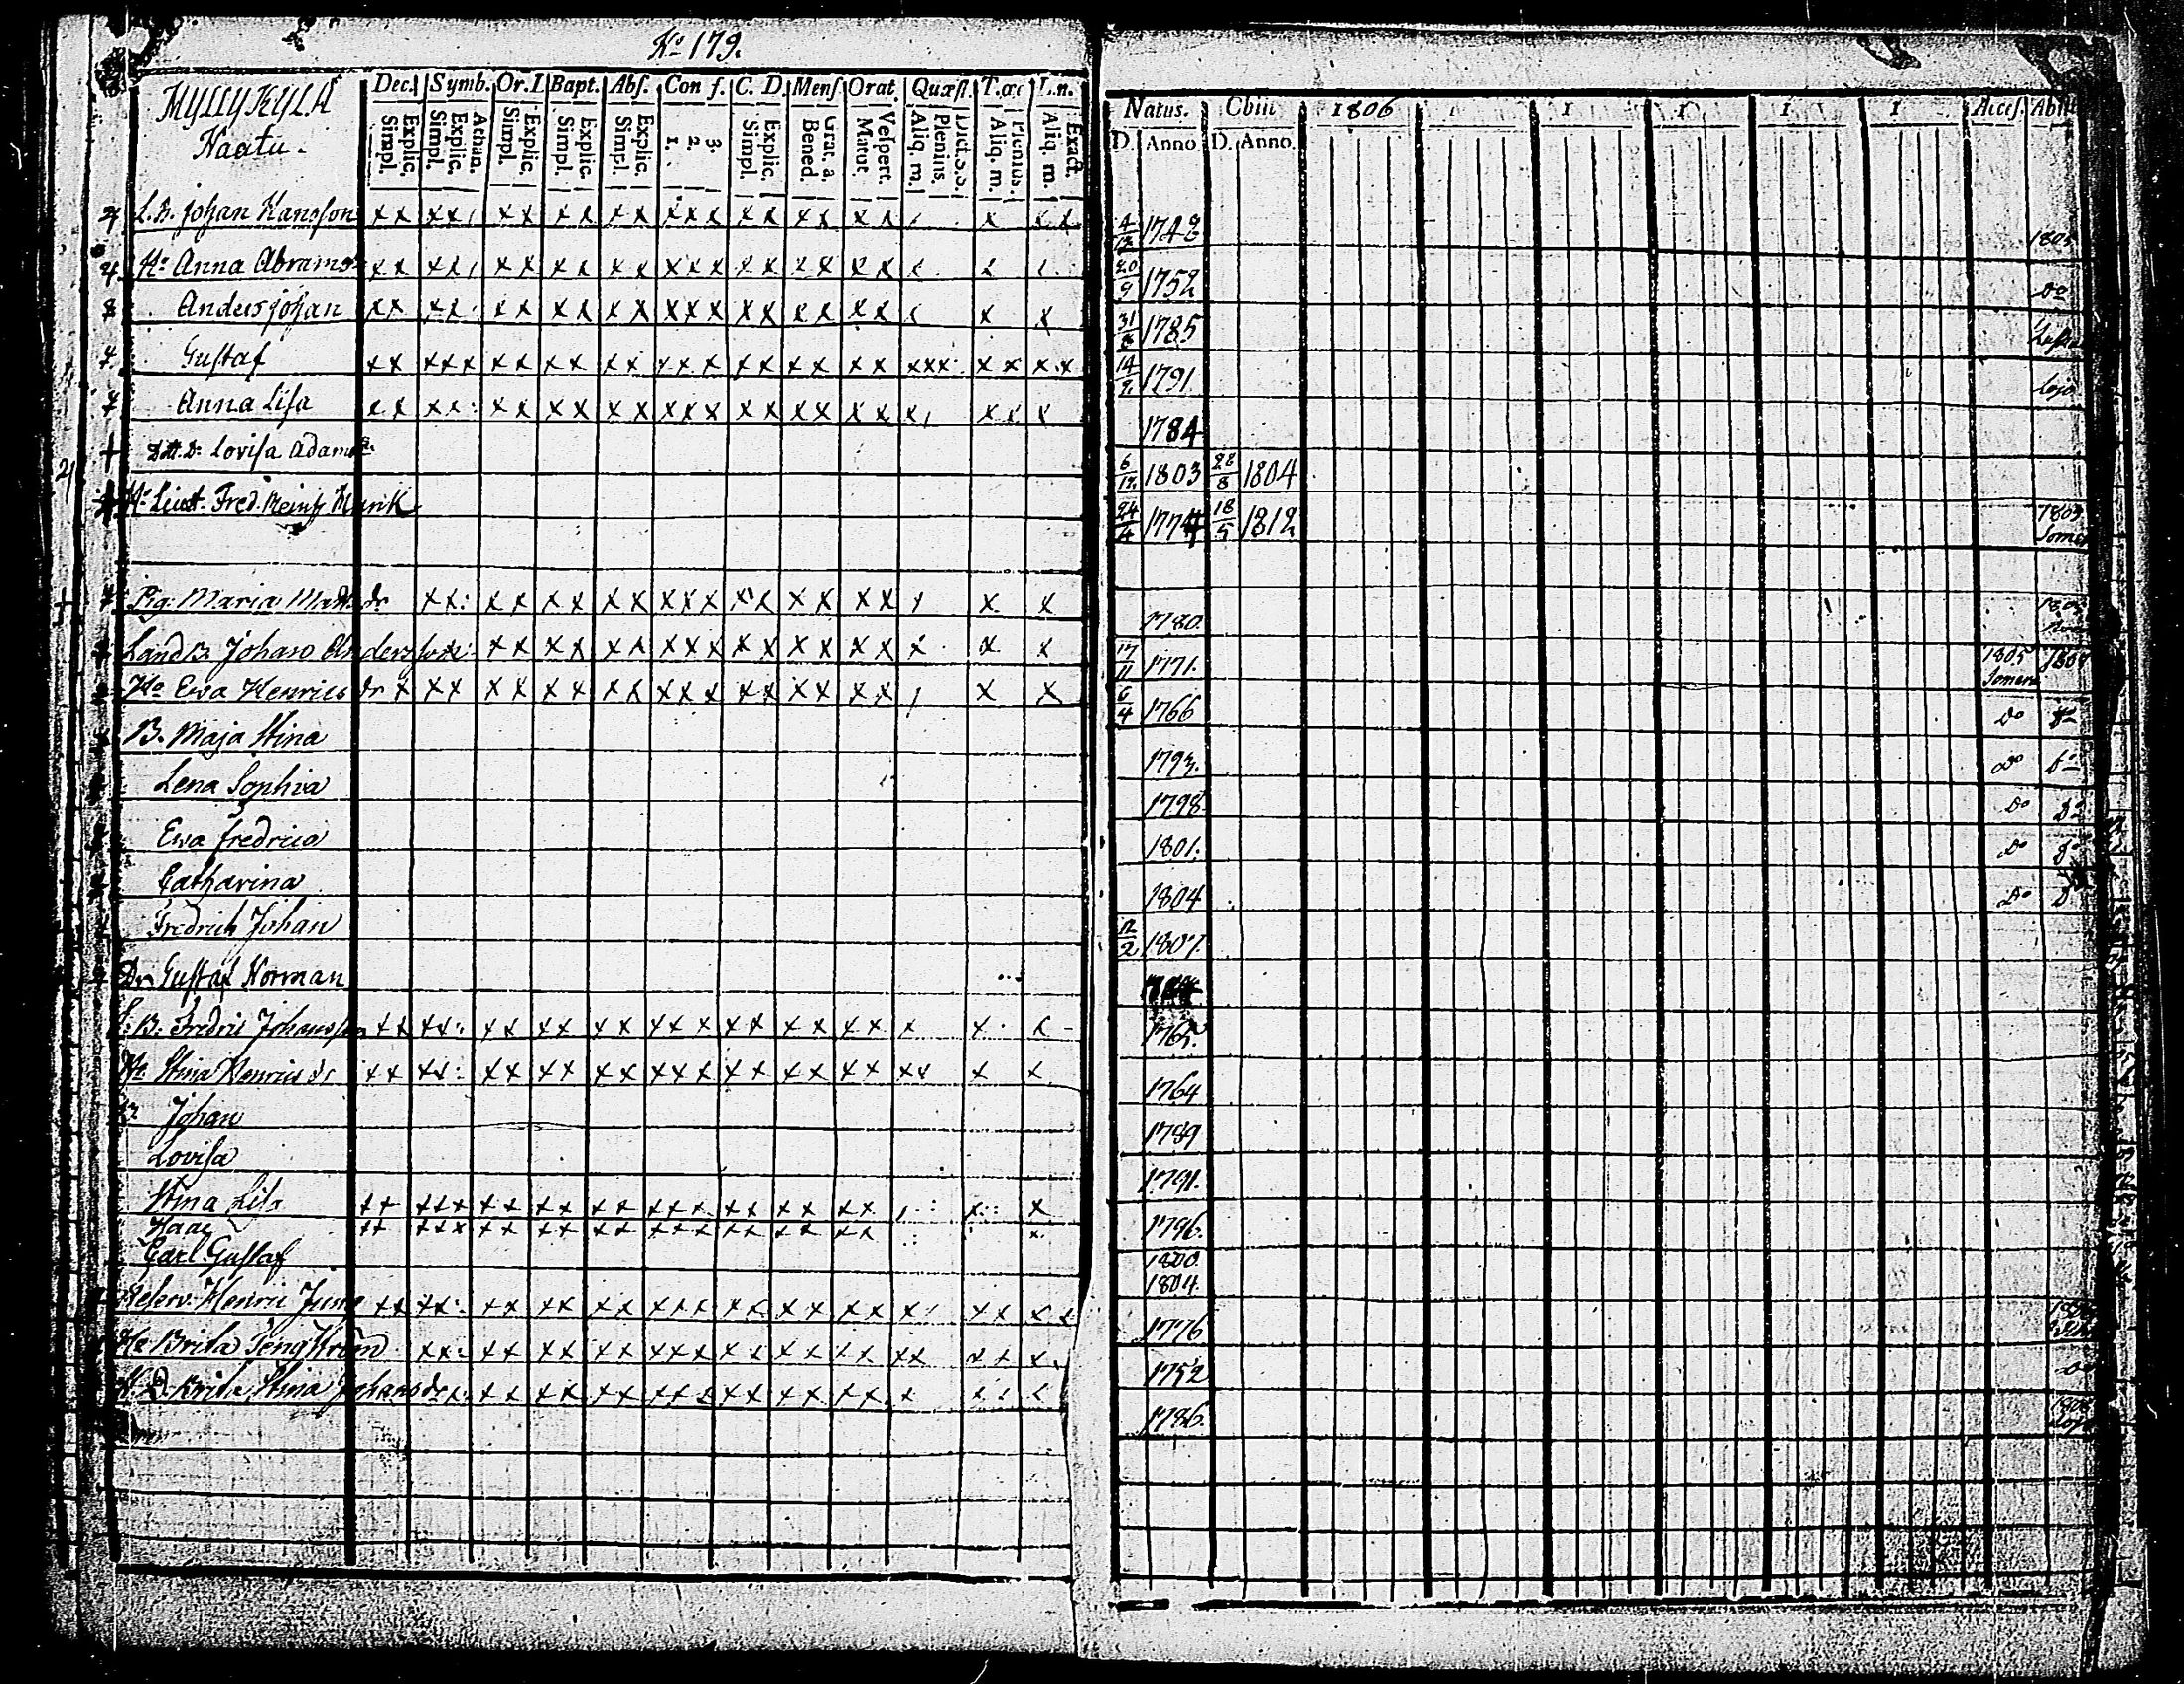 No 179.
MYLLYKYLÄ
Haatu.
Dec. Symb. Or. Bapt. Abſ. Con f. C. D. Menſ Orat. Quæſt. T.œc
Explic. Simpl. Athan. Explic. Simpl. Explic. Simpl. Explic. Simpl. Explic. Simpl. 3. 2. 1. Explic. Simpl. Grat. a. Bened. Veſpert. Matut. Dict.S.S. Plenius. Aliq. m. Plenius. Aliq. m. Exact. Aliq. m.
L. B. Johan Hansson
Hu Anna Abrams
Anders Johan
Gustaf
Anna Lisa
Lovisa Adams
Lieut. Fred.
Pig. Maria Matts dr
Land B. Johan Andersson
Hu Ewa Henrics dr
B. Maja Stina
Lena Sophia
Ewa Fredrica
Catharina
Fredrich Johan
Dr Gustaf Norman
L. B. Fredric Johansson
Hu Stina Henrics dr
Johan
Lovisa
Stina Lisa
Isaac
Carl Gustaf
Reserv. Henric Jung
Hu Brita
Brita Stina Johans dr
Natus. Obiit 1806 1 1 1 1 1 Acceſ. Abiit
D. Anno D. Anno.
4/12 1742
20/9 1752 Do
31/8 1785
14/2 1791. Lojo
1784
6/12 1803 28/8 1804
24/4 1774 18/5 1812 1803 Somero
1780.
17/11 1771. 1805 Somero
6/4 1766 Do Do
1793. Do Do
1798 Do Do
1801. Do Do
1804 Do D
12/2 1807.
1765.
1764
1789
1791.
1796.
1800.
1804.
1776
1752
1786.